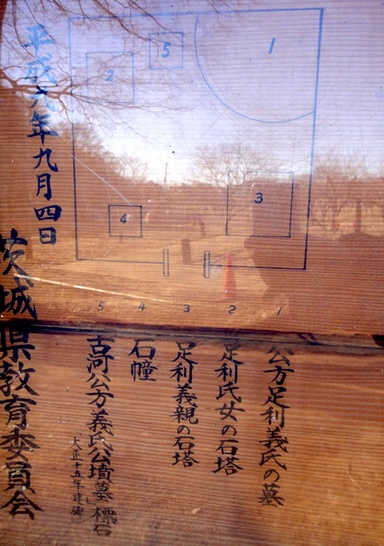 1
2
3
4
5
1 公方足利義氏の墓
2 足利氏女の石塔
3 足利義親の石塔
4 石幢
5 古河公方義氏公墳墓標石
(大正十五年建碑)
平成六年九月四日
茨城県教育委員会